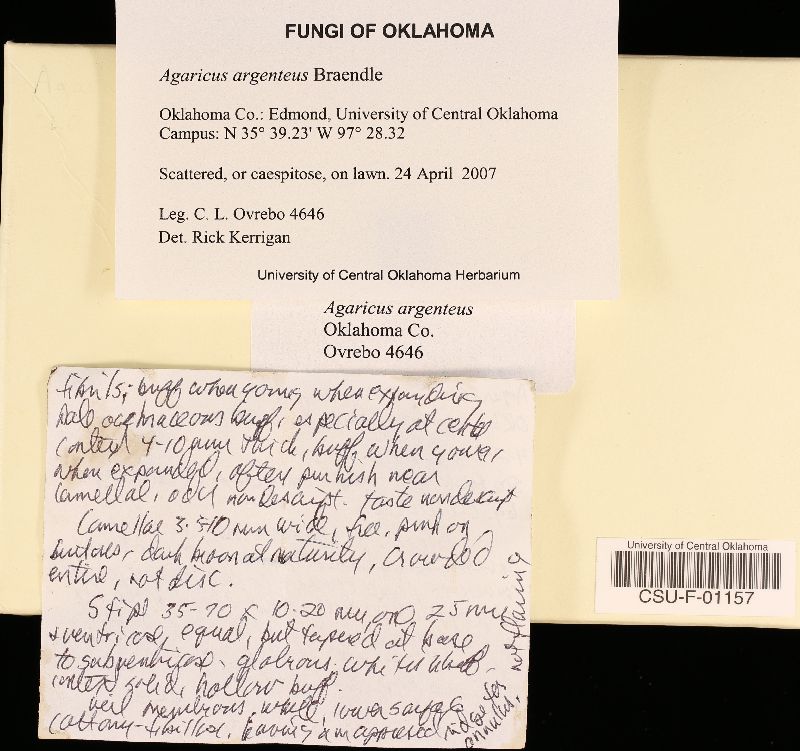 FUNGI OF OKLAHOMA
Agaricus argenteus Braendle
Oklahoma Co.: Edmond, University of Central Oklahoma
Campus: N 35° 39.23' W 97° 28.32
Scattered, or caespitose, on lawn. 24 April 2007
Leg. C. L. Ovrebo 4646
Det. Rick Kerrigan
University of Central Oklahoma Herbarium
Agaricus argenteus
Oklahoma Co.
Ovrebo 4646
fibrils; buff when young when expanding
pale ochraceous buff, especially at center
context 4-10 mm thick, buff when young,
when expanded, often pinkish near
lamellae, odor nondescript. taste nondescript
Lamellae 3.5-10 mm wide, free, pink on
dark brown at maturity, crowded
entire, not disc.
Stipe 35-70 x 10-20 mm and 25 mm
ventricose, equal, but tapered at base
to subventricose. glabrous. white
context solid, hollow buff.
veil membranous, white, lower surface
cottony-fibrillose. leaving an appressed
annulus, not flaring
University of Central Oklahoma
CSU-F-01157